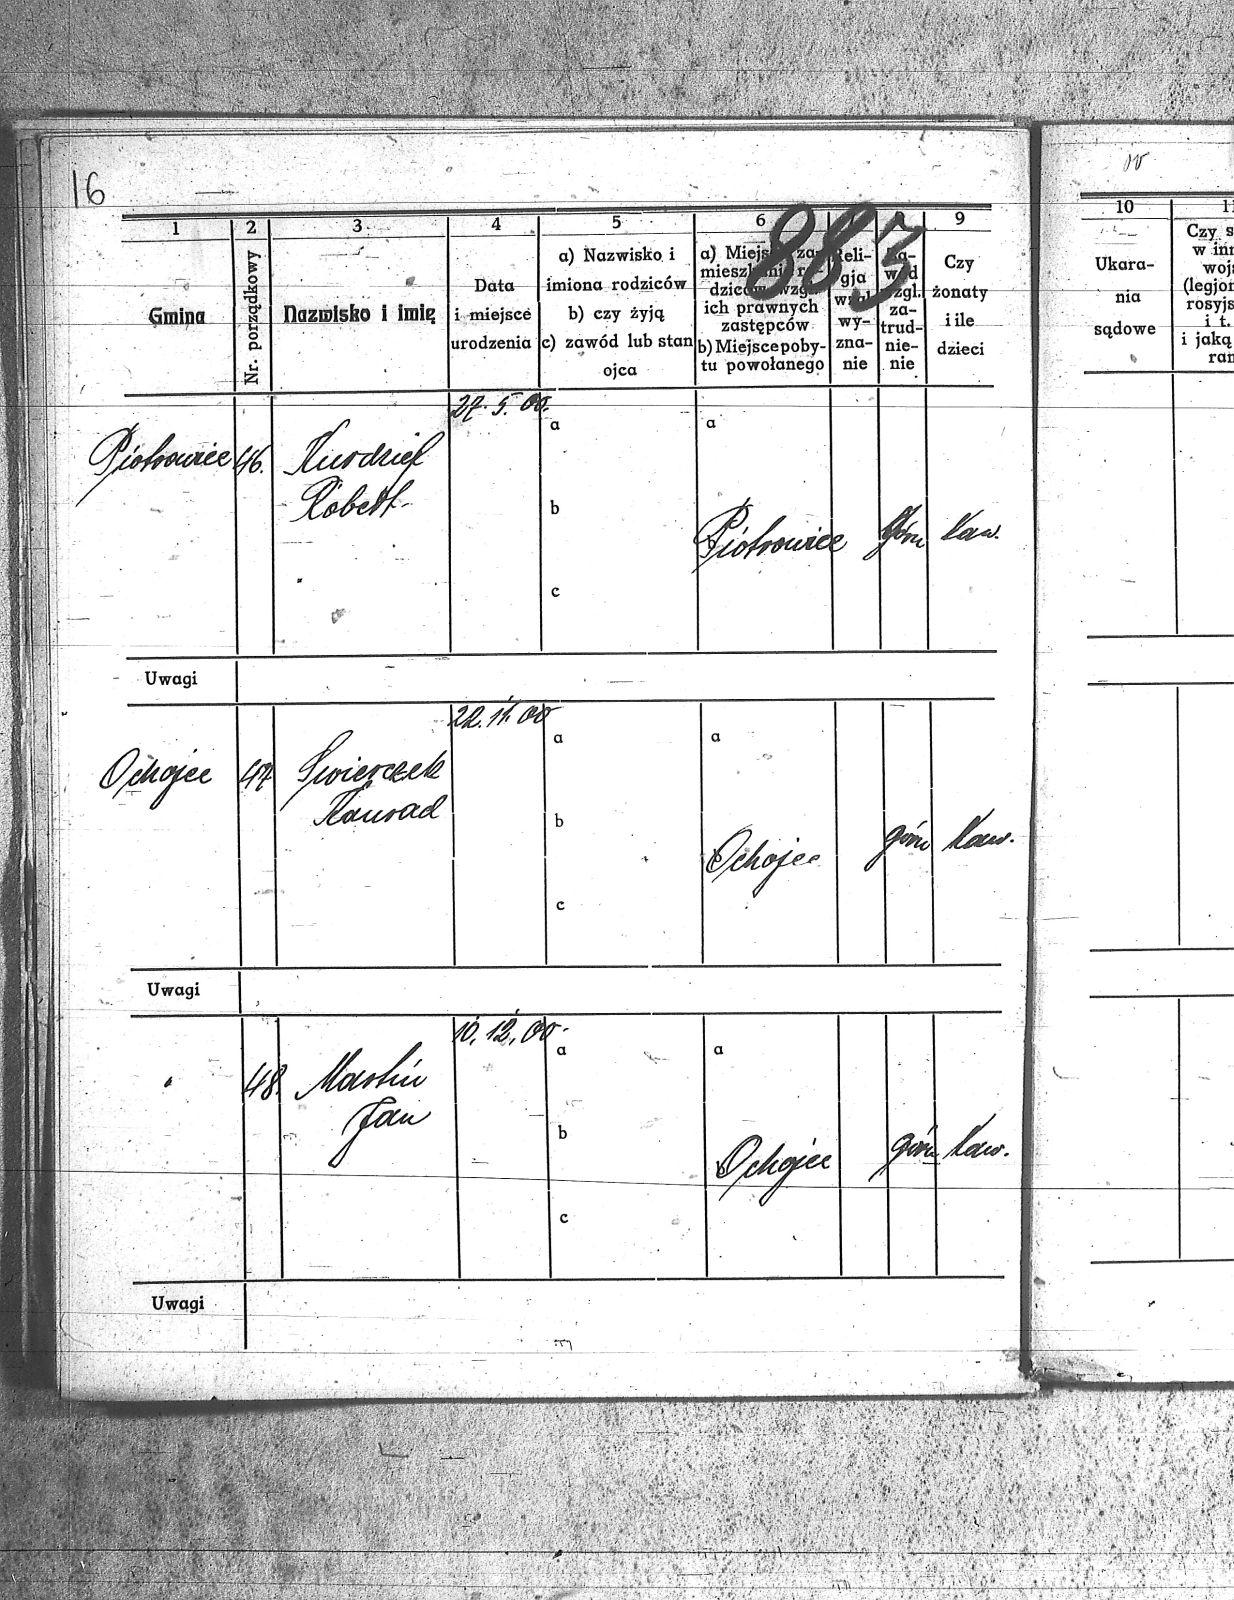 16
883
1 2 3 4 5 6 8 9
Gmina
Nr. porządkowy
Nazwisko i imię
Data
i miejsce
urodzenia
a) Nazwisko i
imiona rodziców
b) czy żyją
c) zawód lub stan
ojca
a) Miejsce za-
mieszkania ro-
dziców wzgl.
ich prawnych
zastępców
b) Miejsce poby-
tu powołanego
Reli-
gja
wzgl.
wy-
zna-
nie
Za-
wód
wzgl.
za-
trud-
nie-
nie
Czy
żonaty
i ile
dzieci
27. 5. 00.
a a
Piotrowice 46. Kurdziel
Robert
b
Piotrowice górn kaw.
c
Uwagi
22. 11. 00
a a
Ochojec 47 Swierczek
Konrad
b
Ochojec górn kaw.
c
Uwagi
10. 12. 00.
a a
48. Martin
Jan
b
b Ochojec górn kaw.
c
Uwagi
00
10 11
Ukara-
nia
sądowe
Czy s
w inn
wojs
(legjon
rosyjs
i t.
i jaką
ran